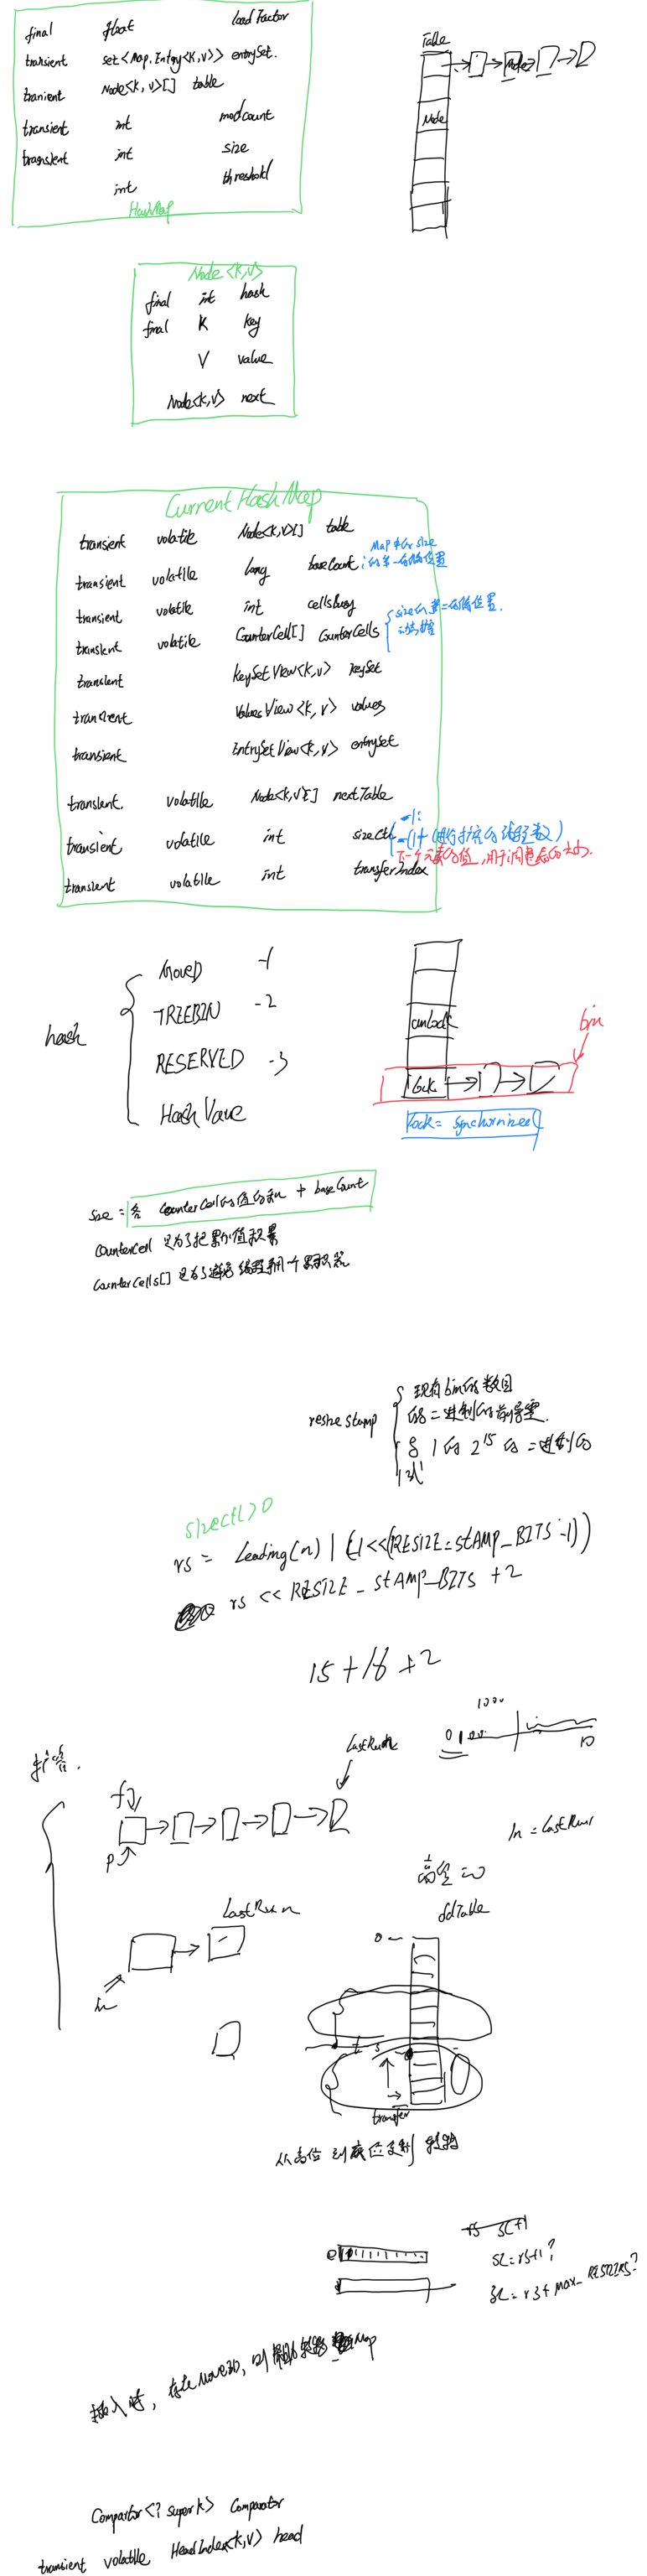 final float loadFactor
transient set<Map.Entry<K,V>> entrySet.
tranient Node<K,V>[] table
transient int modcount
transient int size
int threshold
HashMap
Table
Node
Node<K,V>
final int hash
final K key
V value
Node<K,V> next
Current HashMap
transient volatile Node<K,V>[] table
transient volatile long baseCount
Map 中 size
的第一存储位置
transient volatile int cellsBusy
transient volatile CounterCell[] CounterCells
size的第二存储位置.
transient KeySetView<K,V> keySet
transient ValuesView<K,V> values
transient EntrySetView<K,V> entrySet
transient. volatile Node<K,V>[] nextTable
transient volatile int sizeCtl
-1:
-(1+(进行扩容的线程数)
transient volatile int transferIndex
hash
MOVED -1
TREEBIN -2
RESERVED -3
Hash Value
unlock
lock
bin
lock = synchronized
size = 各 CounterCell的值的和 + baseCount
CounterCell 是为了把累加值积累
CounterCells[] 是为了避免
resize stamp
现有bin的数目
的二进制的前导零.
1的 2^15 的二进制的
sizectl>0
rs = Leading(n) | (1<<(RESIZE_STAMP_BITS-1))
rs << RESIZE_STAMP_BITS +2
15+16+2
扩容.
LastRun
f
p
1000
0100
n
ln = lastRun
LastRun
ln
高位 =0
oldTable
0
transfer
从高位到底位复制 转移
rs sc+1
sc=rs+1?
sc=rs+MAX_RESIZERS?
插入时, 存在MOVED, 则帮助转移 Map
Comparator<? super K> Comparator
transient volatile HeadIndex<K,V> head